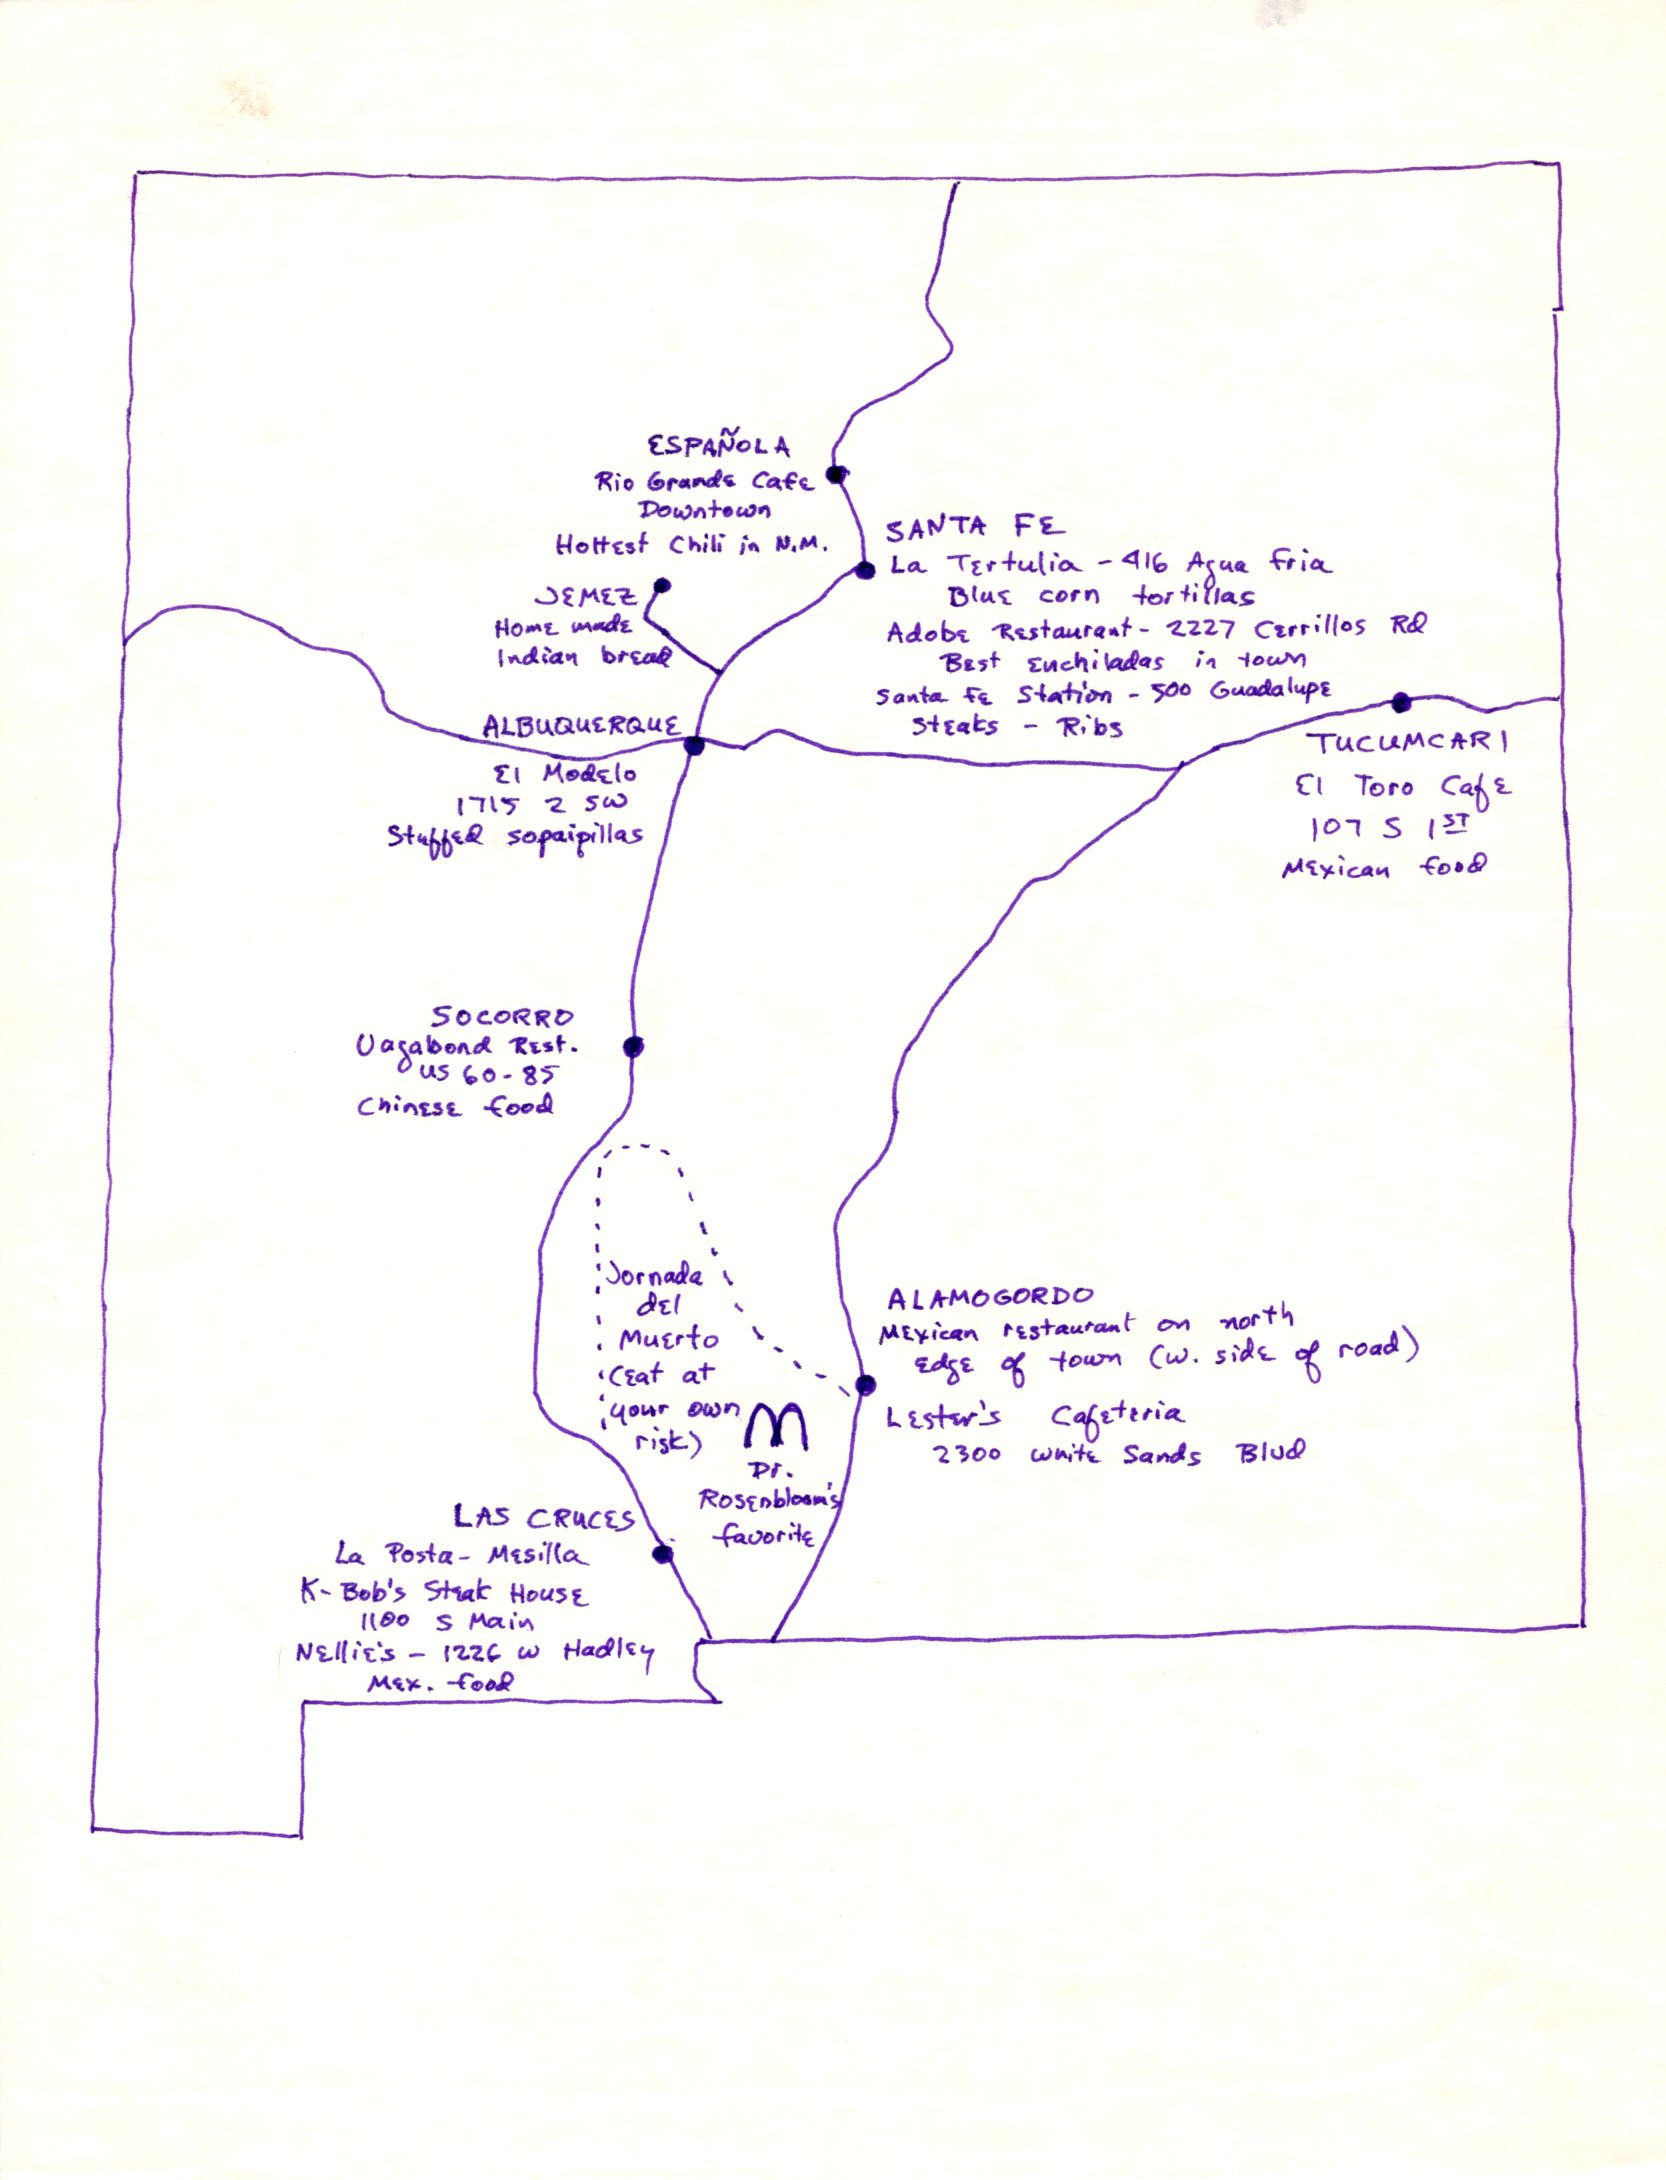 ESPAÑOLA
Rio Grande Cafe
Downtown
Hottest Chili in N.M.
SANTA FE
La Tertulia - 416 Agua Fria
Blue corn tortillas
Adobe Restaurant - 2227 Cerrillos Rd
Best enchiladas in town
Santa Fe Station - 500 Guadalupe
Steaks - Ribs
JEMEZ
Home made
Indian bread
ALBUQUERQUE
El Modelo
1715 2 SW
Stuffed sopaipillas
TUCUMCARI
El Toro Cafe
107 S 1ST
Mexican food
SOCORRO
Vagabond Rest.
US 60-85
Chinese food
Jornada
del
Muerto
(eat at
your own
risk)
M
Dr.
Rosenbloom's
favorite
ALAMOGORDO
Mexican restaurant on north
edge of town (W. side of road)
Lester's Cafeteria
2300 White Sands Blvd
LAS CRUCES
La Posta - Mesilla
K-Bob's Steak House
1100 S Main
Nellie's - 1226 W Hadley
Mex. food